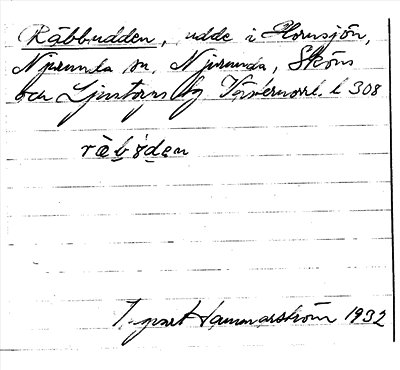 Räbbudden, udde i Hornsjön,
Njurunda sn, Njurunda, Sköns
och Ljustorps tg Västernorrl. l 308
räb´ø̀den
Ingvart Hammarström 1932